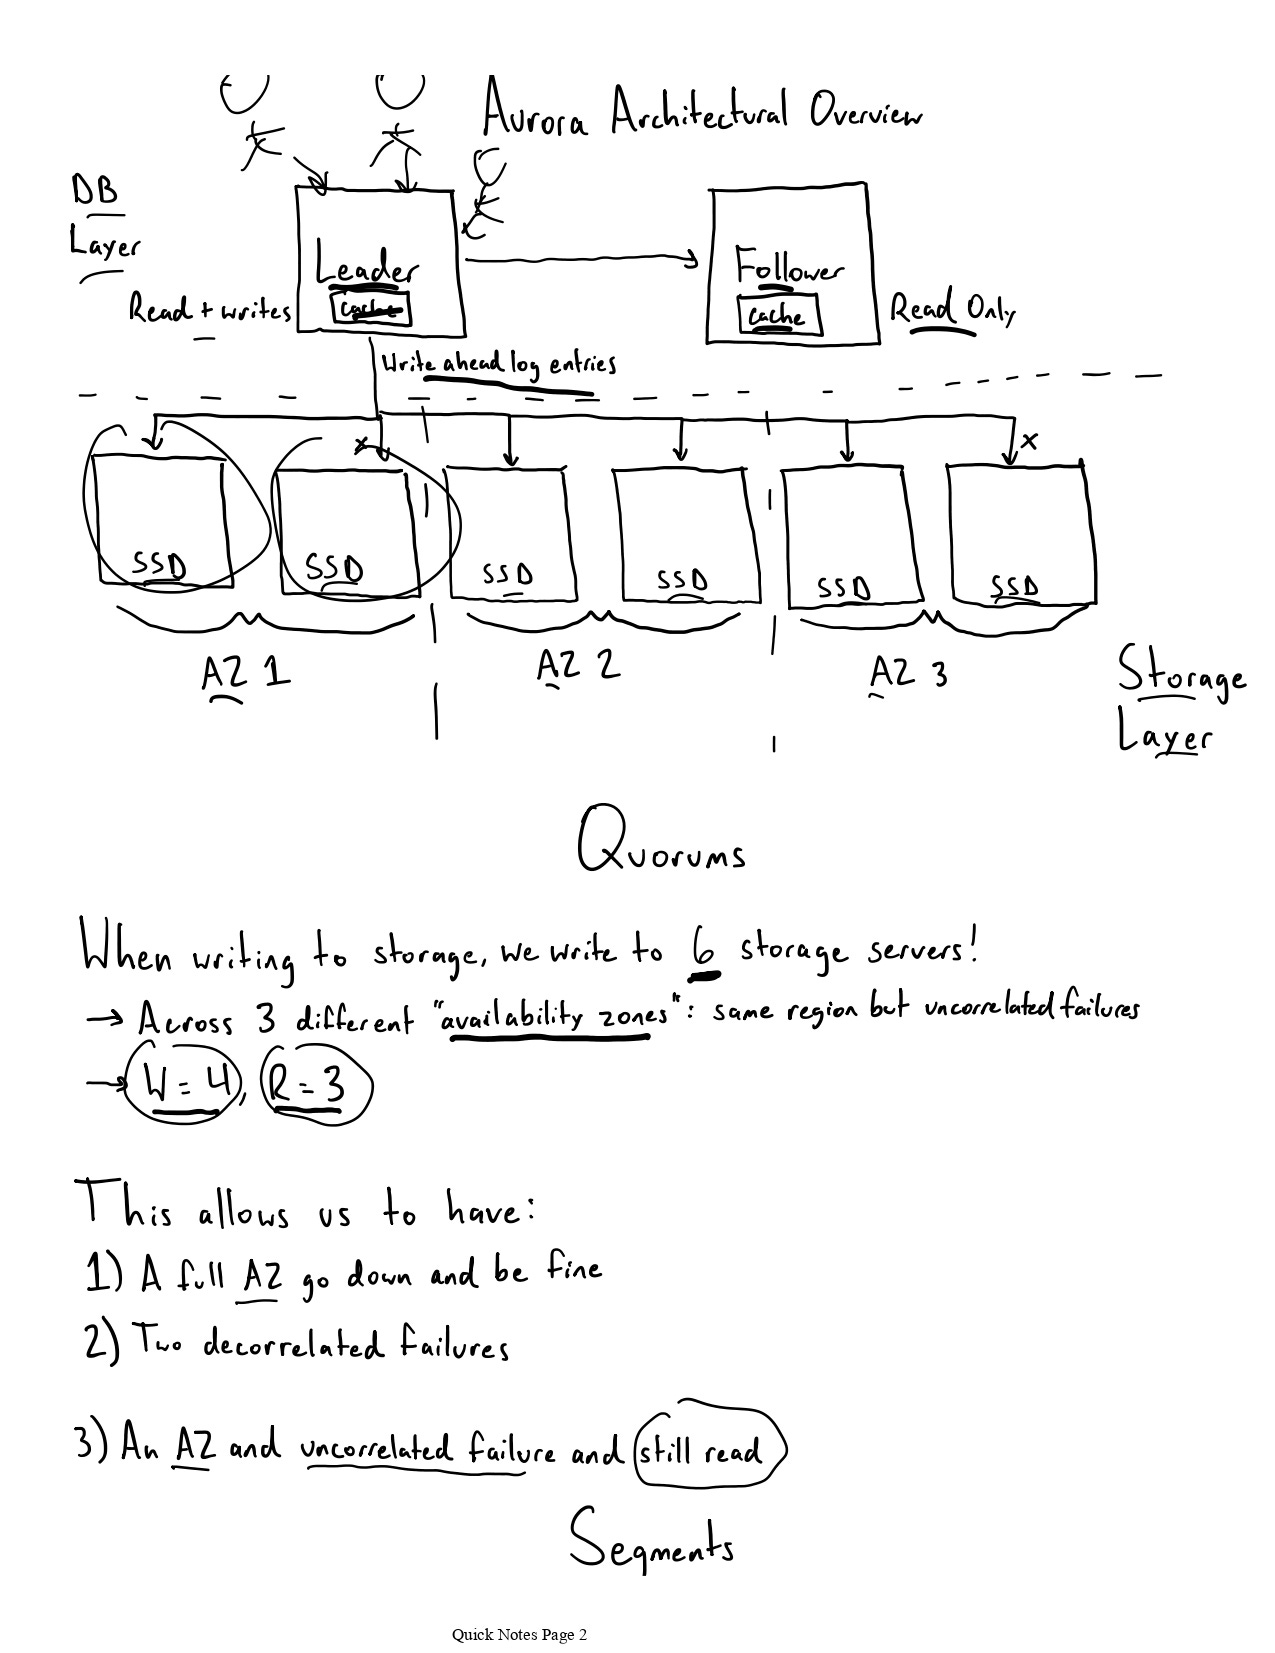 Aurora Architectural Overview
DB
Layer
Leader
cache
Read + writes
Follower
cache
Read Only
Write ahead log entries
x
x
SSD
SSD
SSD
SSD
SSD
SSD
AZ 1
AZ 2
AZ 3
Storage
Layer
Quorums
When writing to storage, we write to 6 storage servers!
→ Across 3 different "availability zones": same region but uncorrelated failures
→ W = 4, R = 3
This allows us to have:
1) A full AZ go down and be fine
2) Two decorrelated failures
3) An AZ and uncorrelated failure and still read
Segments
Quick Notes Page 2